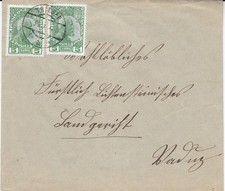 Wohllöbliches
Fürstlich Liechtensteinisches
Landgericht
Vaduz